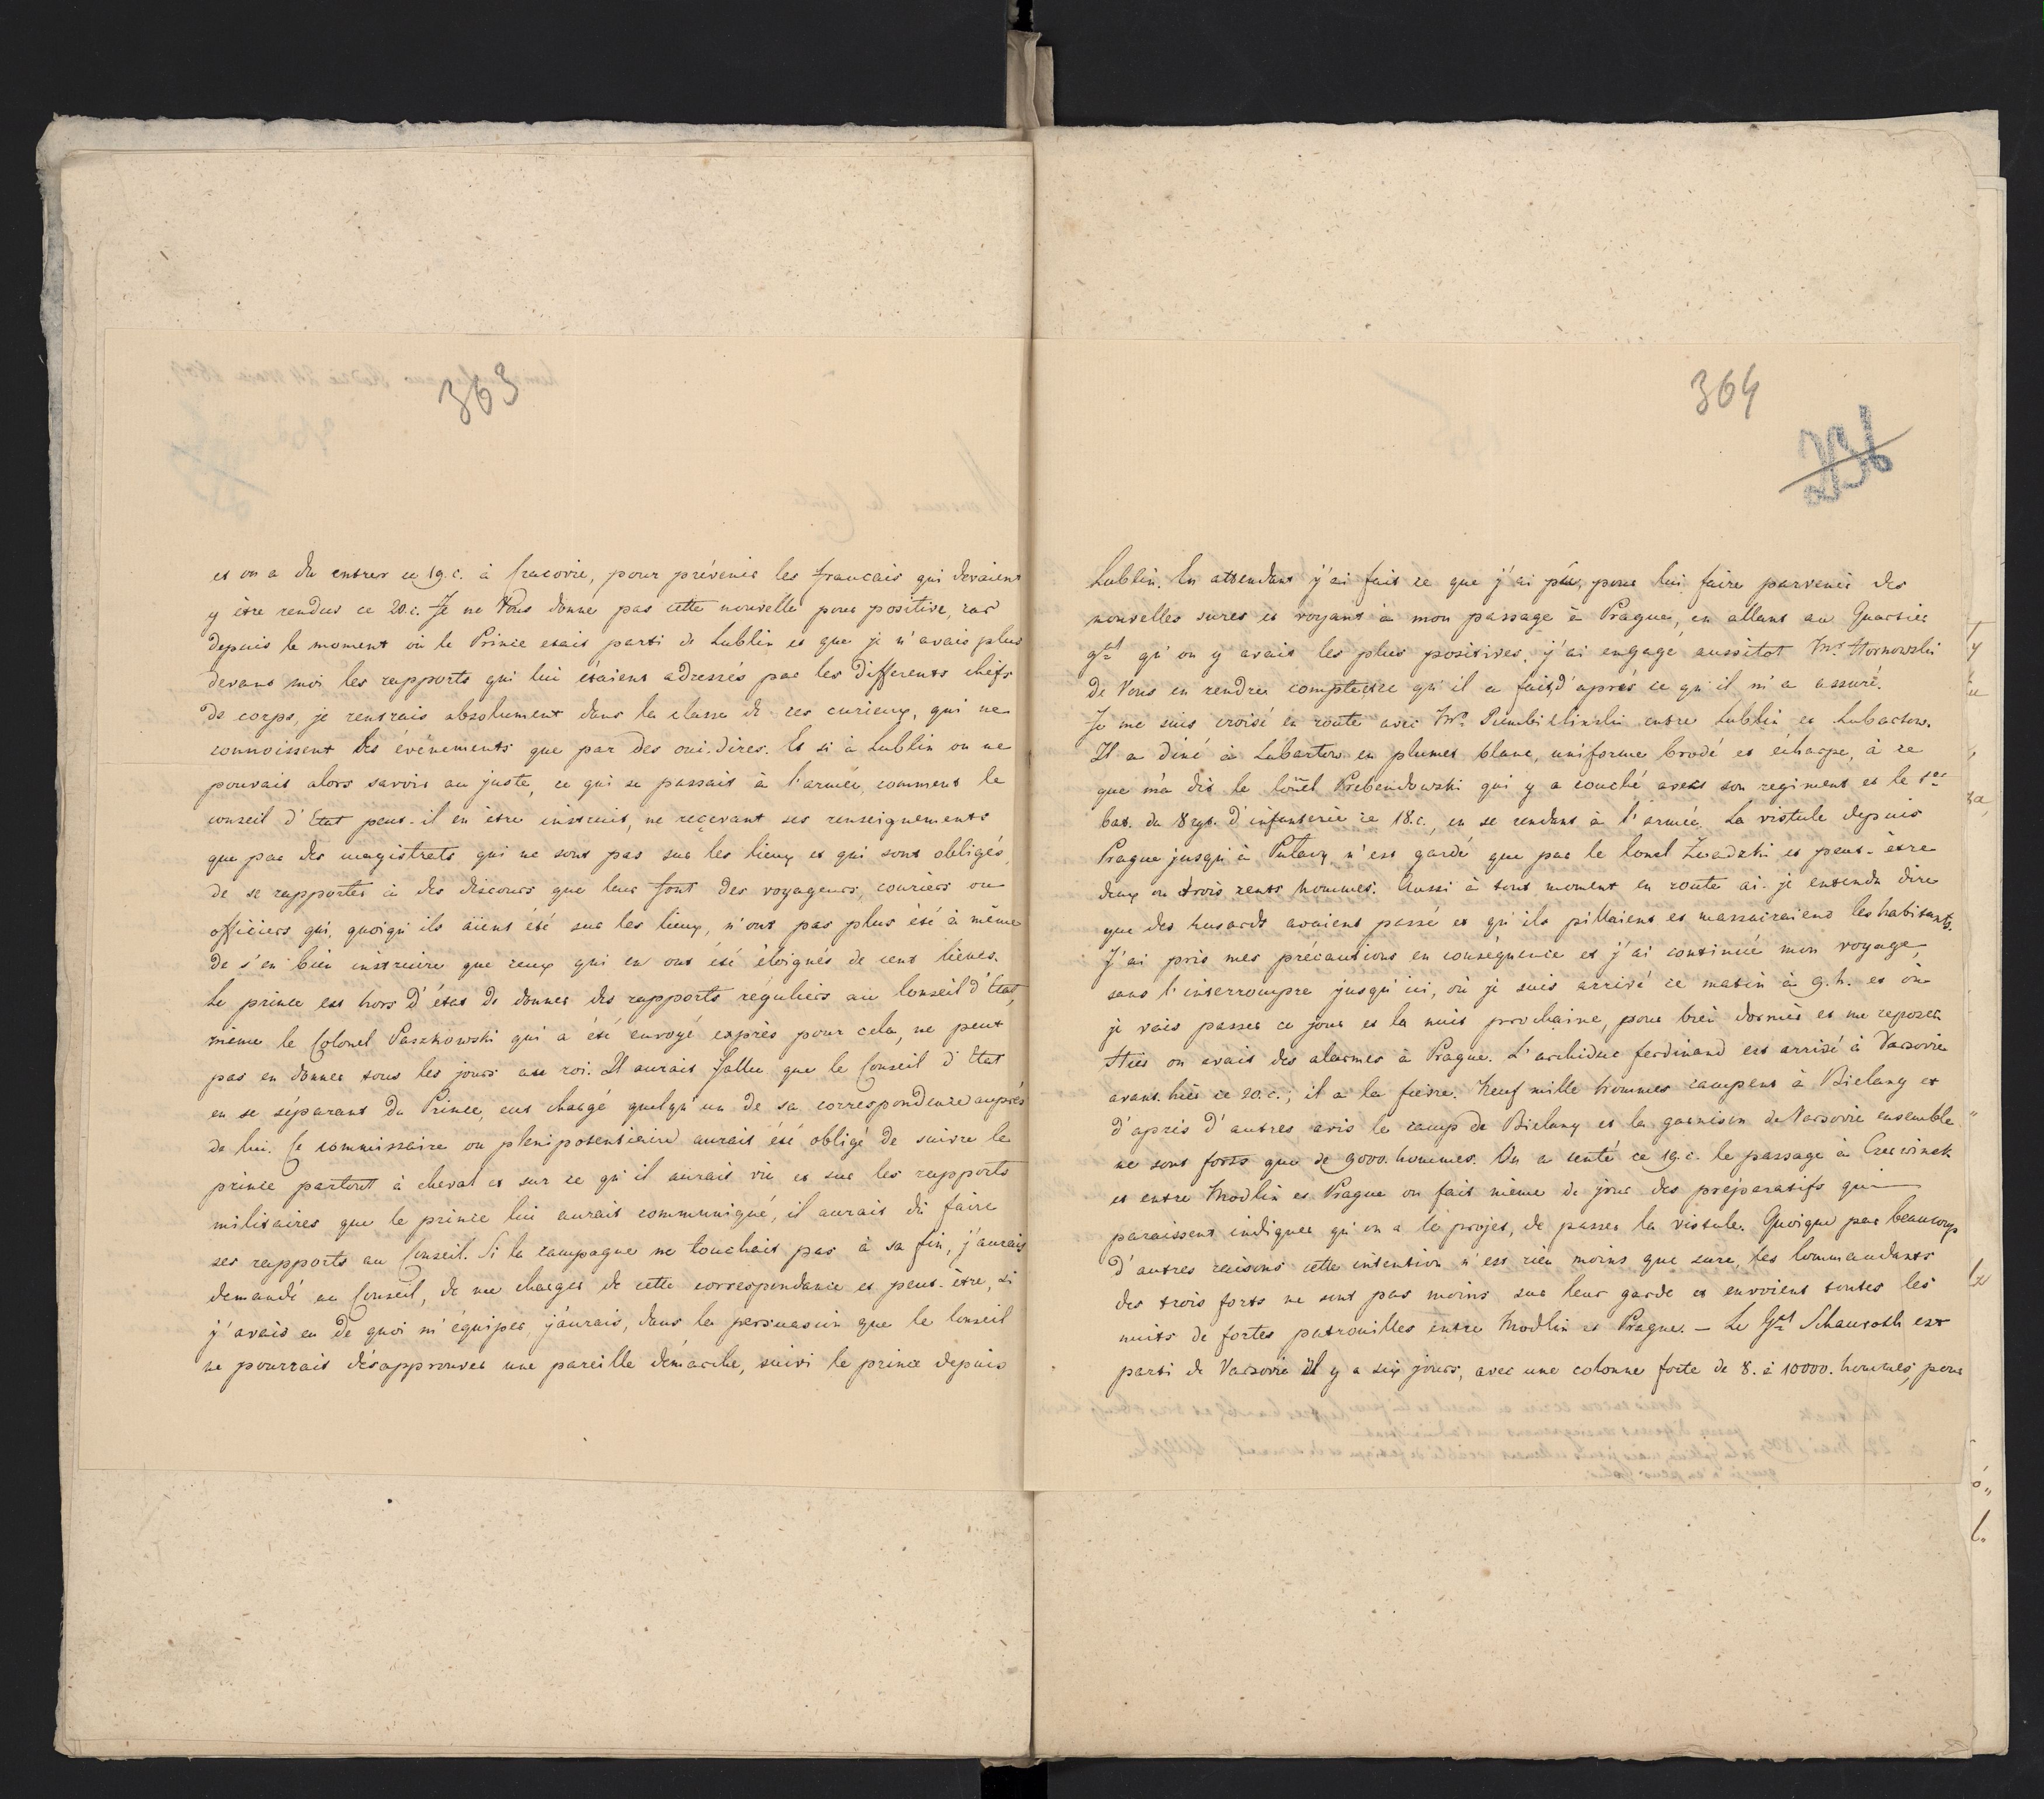 363
et on a du entrer ce 19. c. à Cracovie, pour prévenir les francais qui devaient
y être rendus ce 20. c. Je ne Vous donne pas cette nouvelle pour positive, car
depuis le moment où le Prince etait parti de Lublin et que je n'avais plus
devant moi les rapports qui lui étaient adressés par les differents chefs
de corps, je rentrais absolument dans la classe de ces curieux, qui ne
connoissent les événements que par des oui-dires. Et si à Lublin on ne
pouvait alors savoir au juste, ce qui se passait à l'armée, comment le
conseil d'Etat peut-il en être instruit, ne reçevant ses renseignements
que par des magistrats qui ne sont pas sur les lieux et qui sont obligés,
de se rapporter à des discours que leur font des voyageurs, couriers ou
officiers qui, quoiqu'ils aiient été sur les lieux, n'ont pas plus été à même
de s'en bien instruire que ceux qui en ont été éloignés de cent lieues.
Le prince est hors d'état de donner des rapports réguliers au Conseil d'Etat,
même le Colonel Paszkowski qui a été envoyé exprès pour cela, ne peut
pas en donner tous les jours au roi. Il aurait fallu que le Conseil d'Etat
en se séparant du Prince, eut chargé quelqu'un de sa correspondence auprès
de lui. Ce commissaire ou plenipotentiaire aurait été obligé de suivre le
prince partout à cheval et sur ce qu'il aurait vu et sur les rapports
militaires que le prince lui aurait communiqué, il aurait du faire
ses rapports au Conseil. Si la campagne ne touchait pas à sa fin, j'aurais
demandé au Conseil, de me charger de cette correspondance et peut-être, si
j'avais eu de quoi m'équiper, j'aurais, dans la persuasion que le Conseil
ne pourrait désapprouver une pareille démarche, suivi le prince depuis
364
Lublin. En attendant j'ai fait ce que j'ai pu, pour lui faire parvenir des
nouvelles sures et voyant à mon passage à Prague, en allant au Quartier
gral qu'on y avait les plus positives, j'ai engagé aussitot Mr. Hornowski
de Vous en rendre compte, ce qu'il a fait, d'après ce qu'il m'a assuré.
Je me suis croisé en route avec Mr. entre Lublin et Lubartow.
Il a diné à Lubartow en plumet blanc, uniforme brodé et écharpe, à ce
que m'a dit le Conel Prebendowski qui y a couché avec son regiment et le 1er
bat. du 8 rgt. d'infanterie ce 18. c., en se rendant à l'armée. La vistule depuis
Prague jusqu'à Pulawy n'est gardé que par le Conel et peut-être
deux ou trois cents hommes. Aussi à tout moment en route ai-je entendu dire
que des husards avaient passé et qu'ils pillaient et massacraient les habitants.
J'ai pris mes précautions en conséquence et j'ai continué mon voyage,
sans l'interrompre jusqu'ici, où je suis arrivé ce matin à 9. h. et où
je vais passer ce jour et la nuit prochaine, pour bien dormir et me reposer.
Hier on avait des alarmes à Prague. L'archiduc ferdinand est arrivé à Varsovie
avant-hier ce 20. c.; il a la fievre. Neuf mille hommes campent à Bielany et
d'après d'autres avis le camp de Bielany et la garnison de Varsovie ensemble
ne sont forts que de 9000. hommes. On a tenté ce 19. c. le passage à Czerwinsk
et entre Modlin et Prague on fait même de jour des préparatifs qui
paraissent indiquer qu'on a le projet, de passer la vistule. Quoique par beaucoup
d'autres raisons cette intention n'est rien moins que sure, les Commandants
des trois forts ne sont pas moins sur leur garde et envoient toutes les
nuits de fortes patrouilles entre Modlin et Prague. – Le Gral Schauroth est
parti de Varsovie il y a six jours, avec une colonne forte de 8. à 10000. hommes, pour